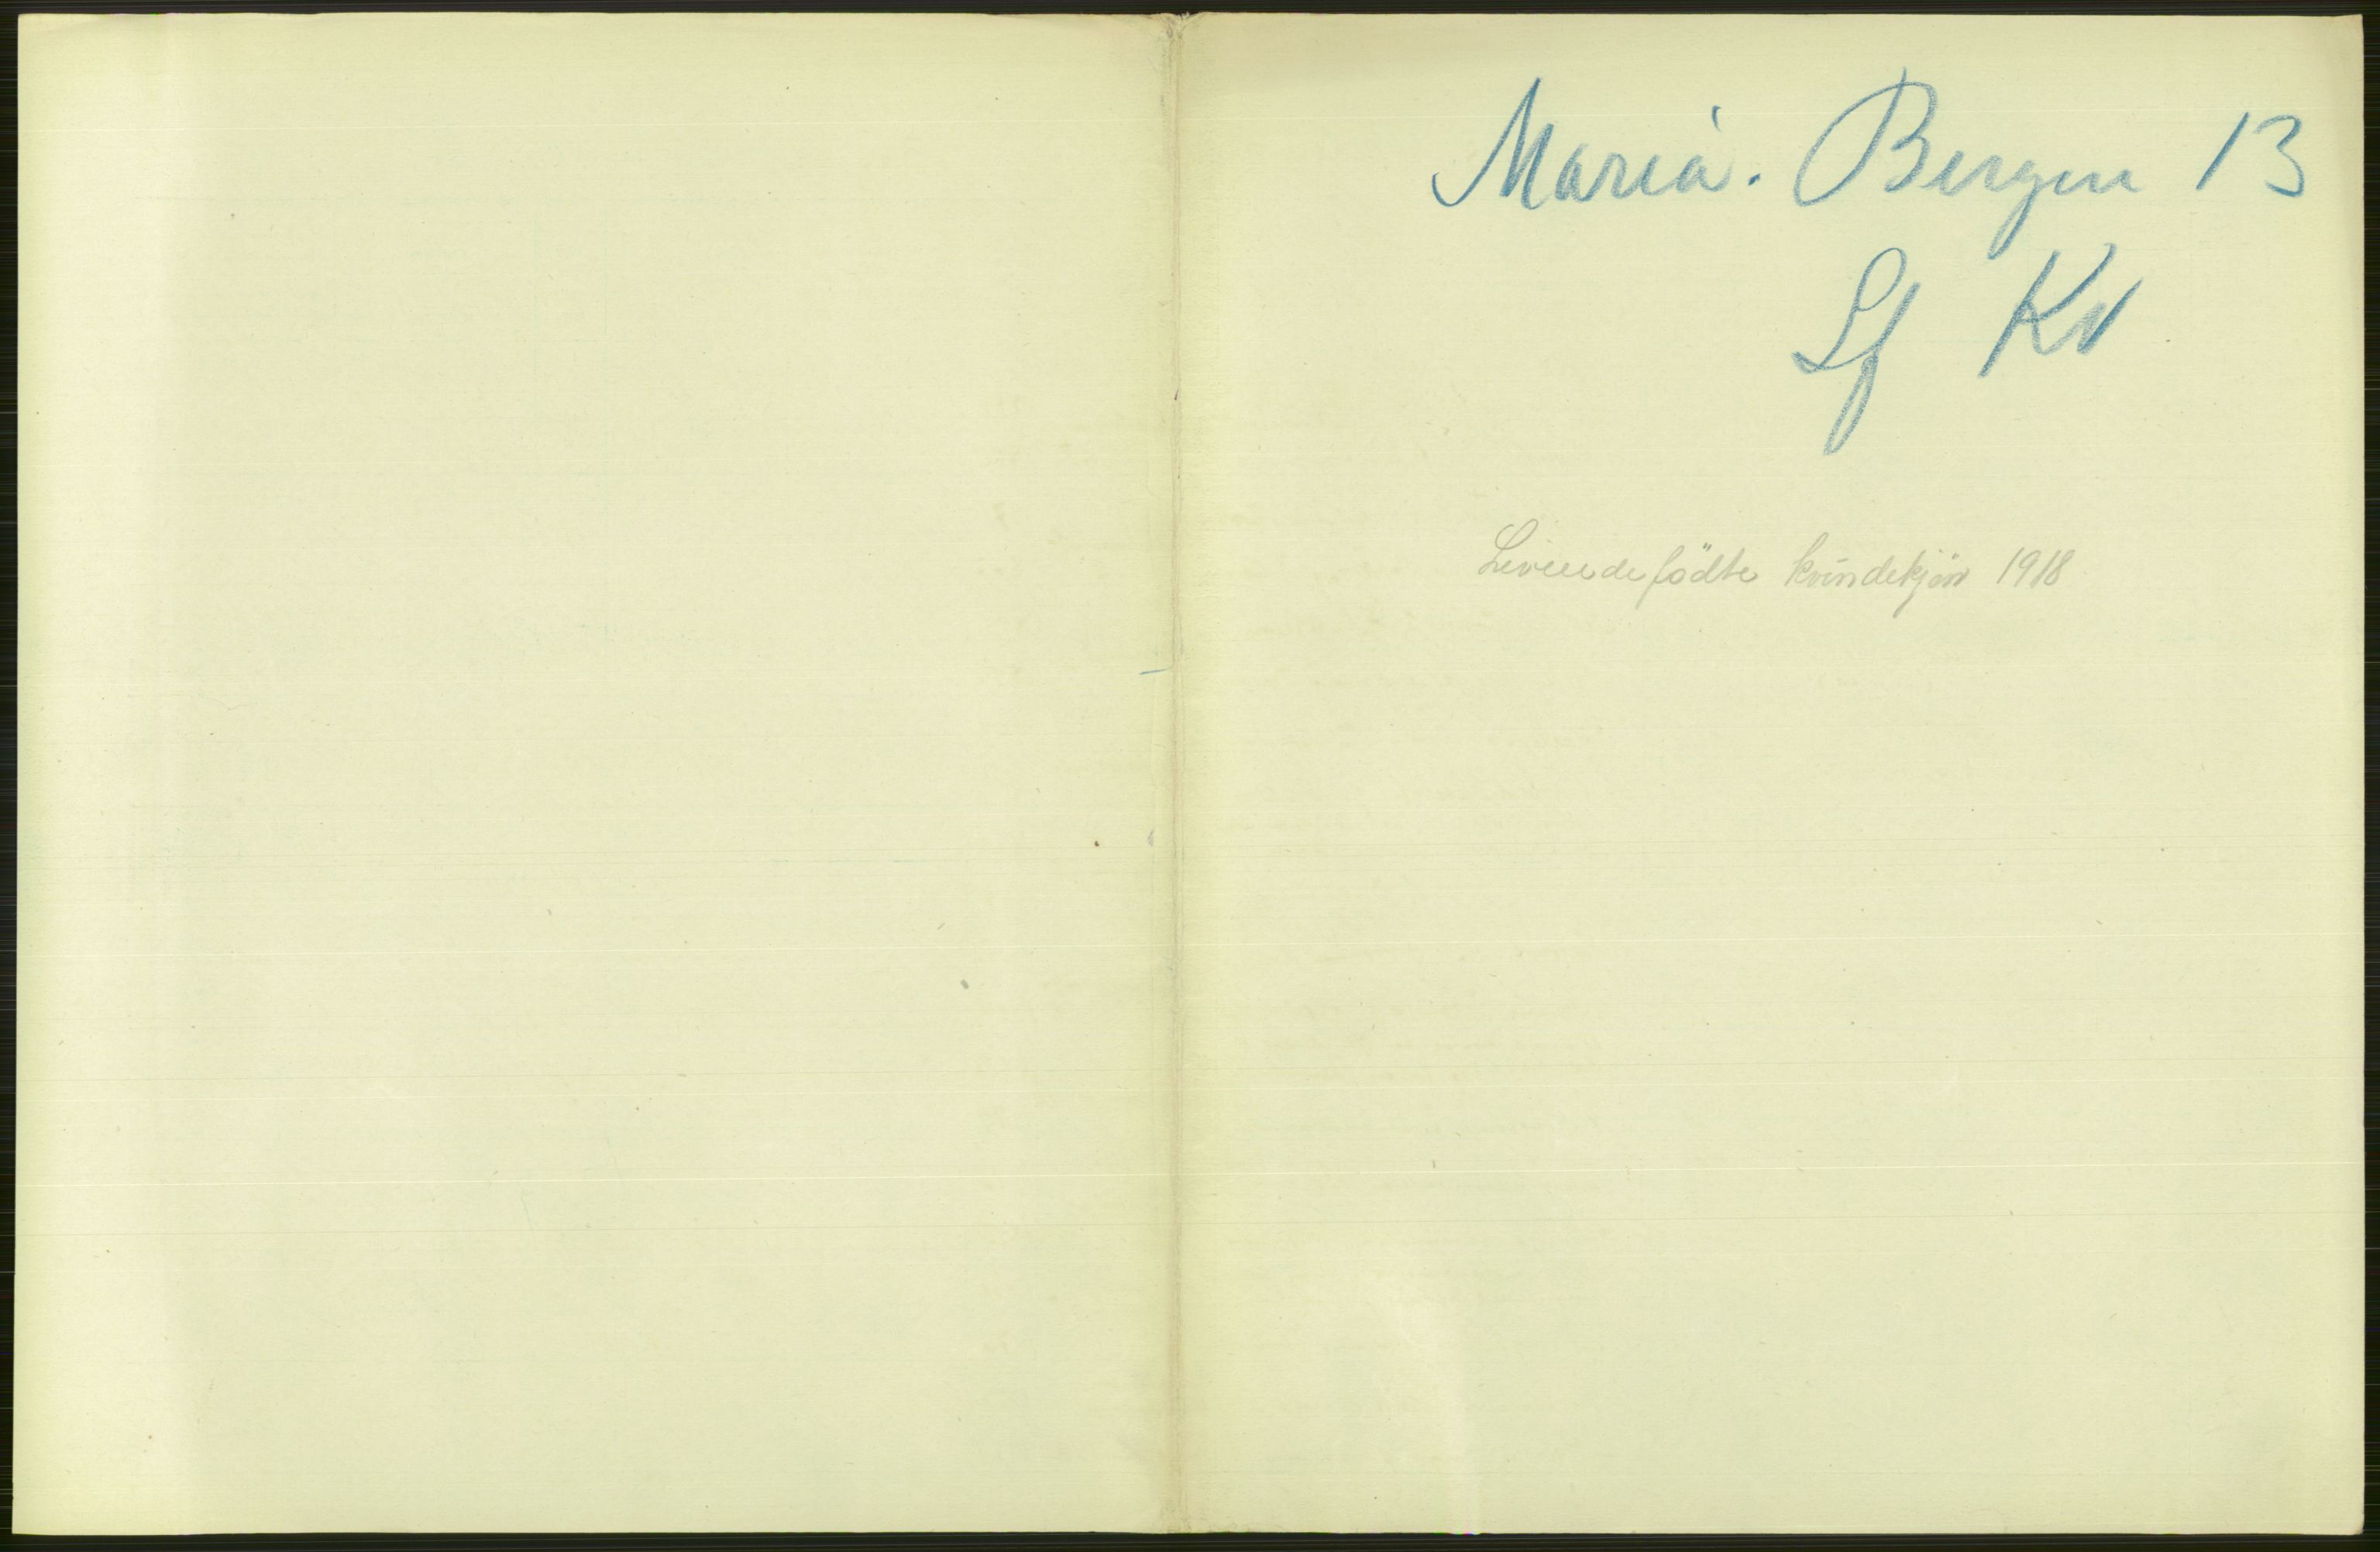 Maria. Bergen 13
Lf Kv
Levendefödte kvindekjön 1918